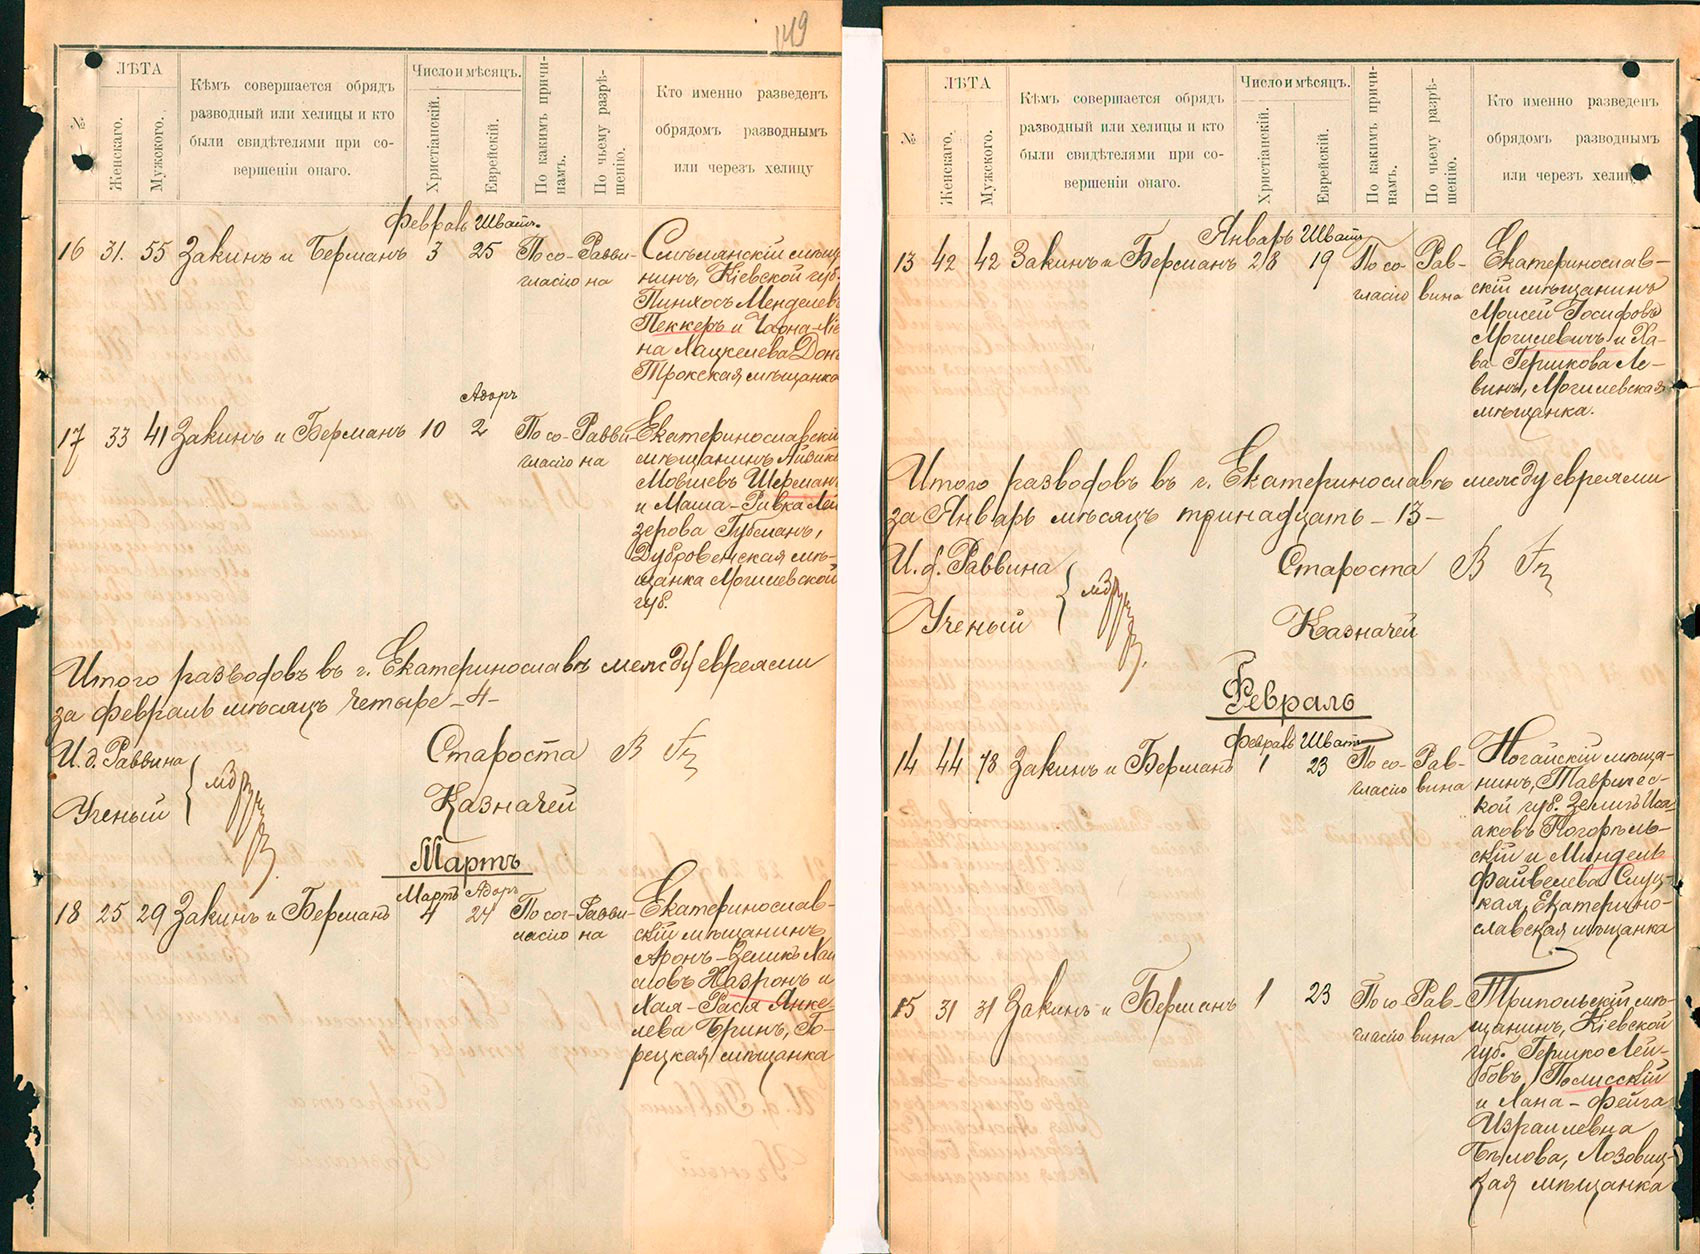 149
№
ЛѢТА
Женскаго.
Мужскаго.
Кѣмъ совершается обрядъ
разводный или хелицы и кто
были свидѣтелями при со-
вершеніи онаго.
Число и мѣсяцъ.
Христіанскій.
Еврейскій.
По какимъ причи-
намъ.
По чьему разрѣ-
шенію.
Кто именно разведенъ
обрядомъ разводнымъ
или черезъ хелицу
Февраль Шватъ.
16 31. 55 Закинъ и Берманъ 3 25 По со- Равви-
гласію на
нинъ, Кіевской губ.
Пинхосъ Менделевъ
Пеккеръ и Чарна-
на Лацкелева Дон
Трокская мѣщанка
Адоръ
17 33 41 Закинъ и Берманъ 10 2 По со- Равви-
гласію на
Екатеринославскій
мѣщанинъ Айзикъ
Мовшевъ Шерманъ
и Маша-Ривка Лей
зерова Губманъ,
Дубровенская мѣ-
щанка Могилевской
губ.
Итого разводовъ въ г. Екатеринославѣ между евреями
за Февраль мѣсяцъ четыре -4-
И. д. Раввина
Ученый
Староста
Казначей
Мартъ
Мартъ Адоръ
18 25 29 Закинъ и Берманъ 4 24 По сог- Равви-
ласію на
Екатеринослав-
скій мѣщанинъ
Аронъ-Зеликъ Хаи
мовъ и
Хая-Рася Янке
лева Бринъ, Го-
рецкая мѣщанка
№
ЛѢТА
Женскаго.
Мужскаго.
Кѣмъ совершается обрядъ
разводный или хелицы и кто
были свидѣтелями при со-
вершеніи онаго.
Число и мѣсяцъ.
Христіанскій.
Еврейскій.
По какимъ причи-
намъ.
По чьему разрѣ-
шенію.
Кто именно разведенъ
обрядомъ разводнымъ
или черезъ хелицу
Январь Шватъ
13 42 42 Закинъ и Берманъ 28 19 По со- Рав-
гласію вина
Екатеринослав-
скій мѣщанинъ
Моисей Іосифовъ
Могилевичъ и Ха-
ва Гершкова Ле-
винъ, Могилевская
мѣщанка.
Итого разводовъ въ г. Екатеринославѣ между евреями
за Январь мѣсяцъ тринадцать -13-
И. д. Раввина
Ученый
Староста
Казначей
Февраль
Февраль Шватъ
14 44 48 Закинъ и Берманъ 1 23 По со- Рав-
гласію вина
Ногайскій мѣща-
нинъ, Таврическ-
кой губ. Зеликъ Иса
аковъ Погорѣль-
скій и Миндель
Файвелева Слуц-
кая, Екатерино-
славская мѣщанка
15 31 31 Закинъ и Берманъ 1 23 По со Рав-
гласію вина
Трипольскій мѣ-
щанинъ, Кіевской
губ. Гершко Лей-
бовъ Полисскій
и Лана-Фейга
Израилевна
Бѣлова, Лозовиц-
кая мѣщанка